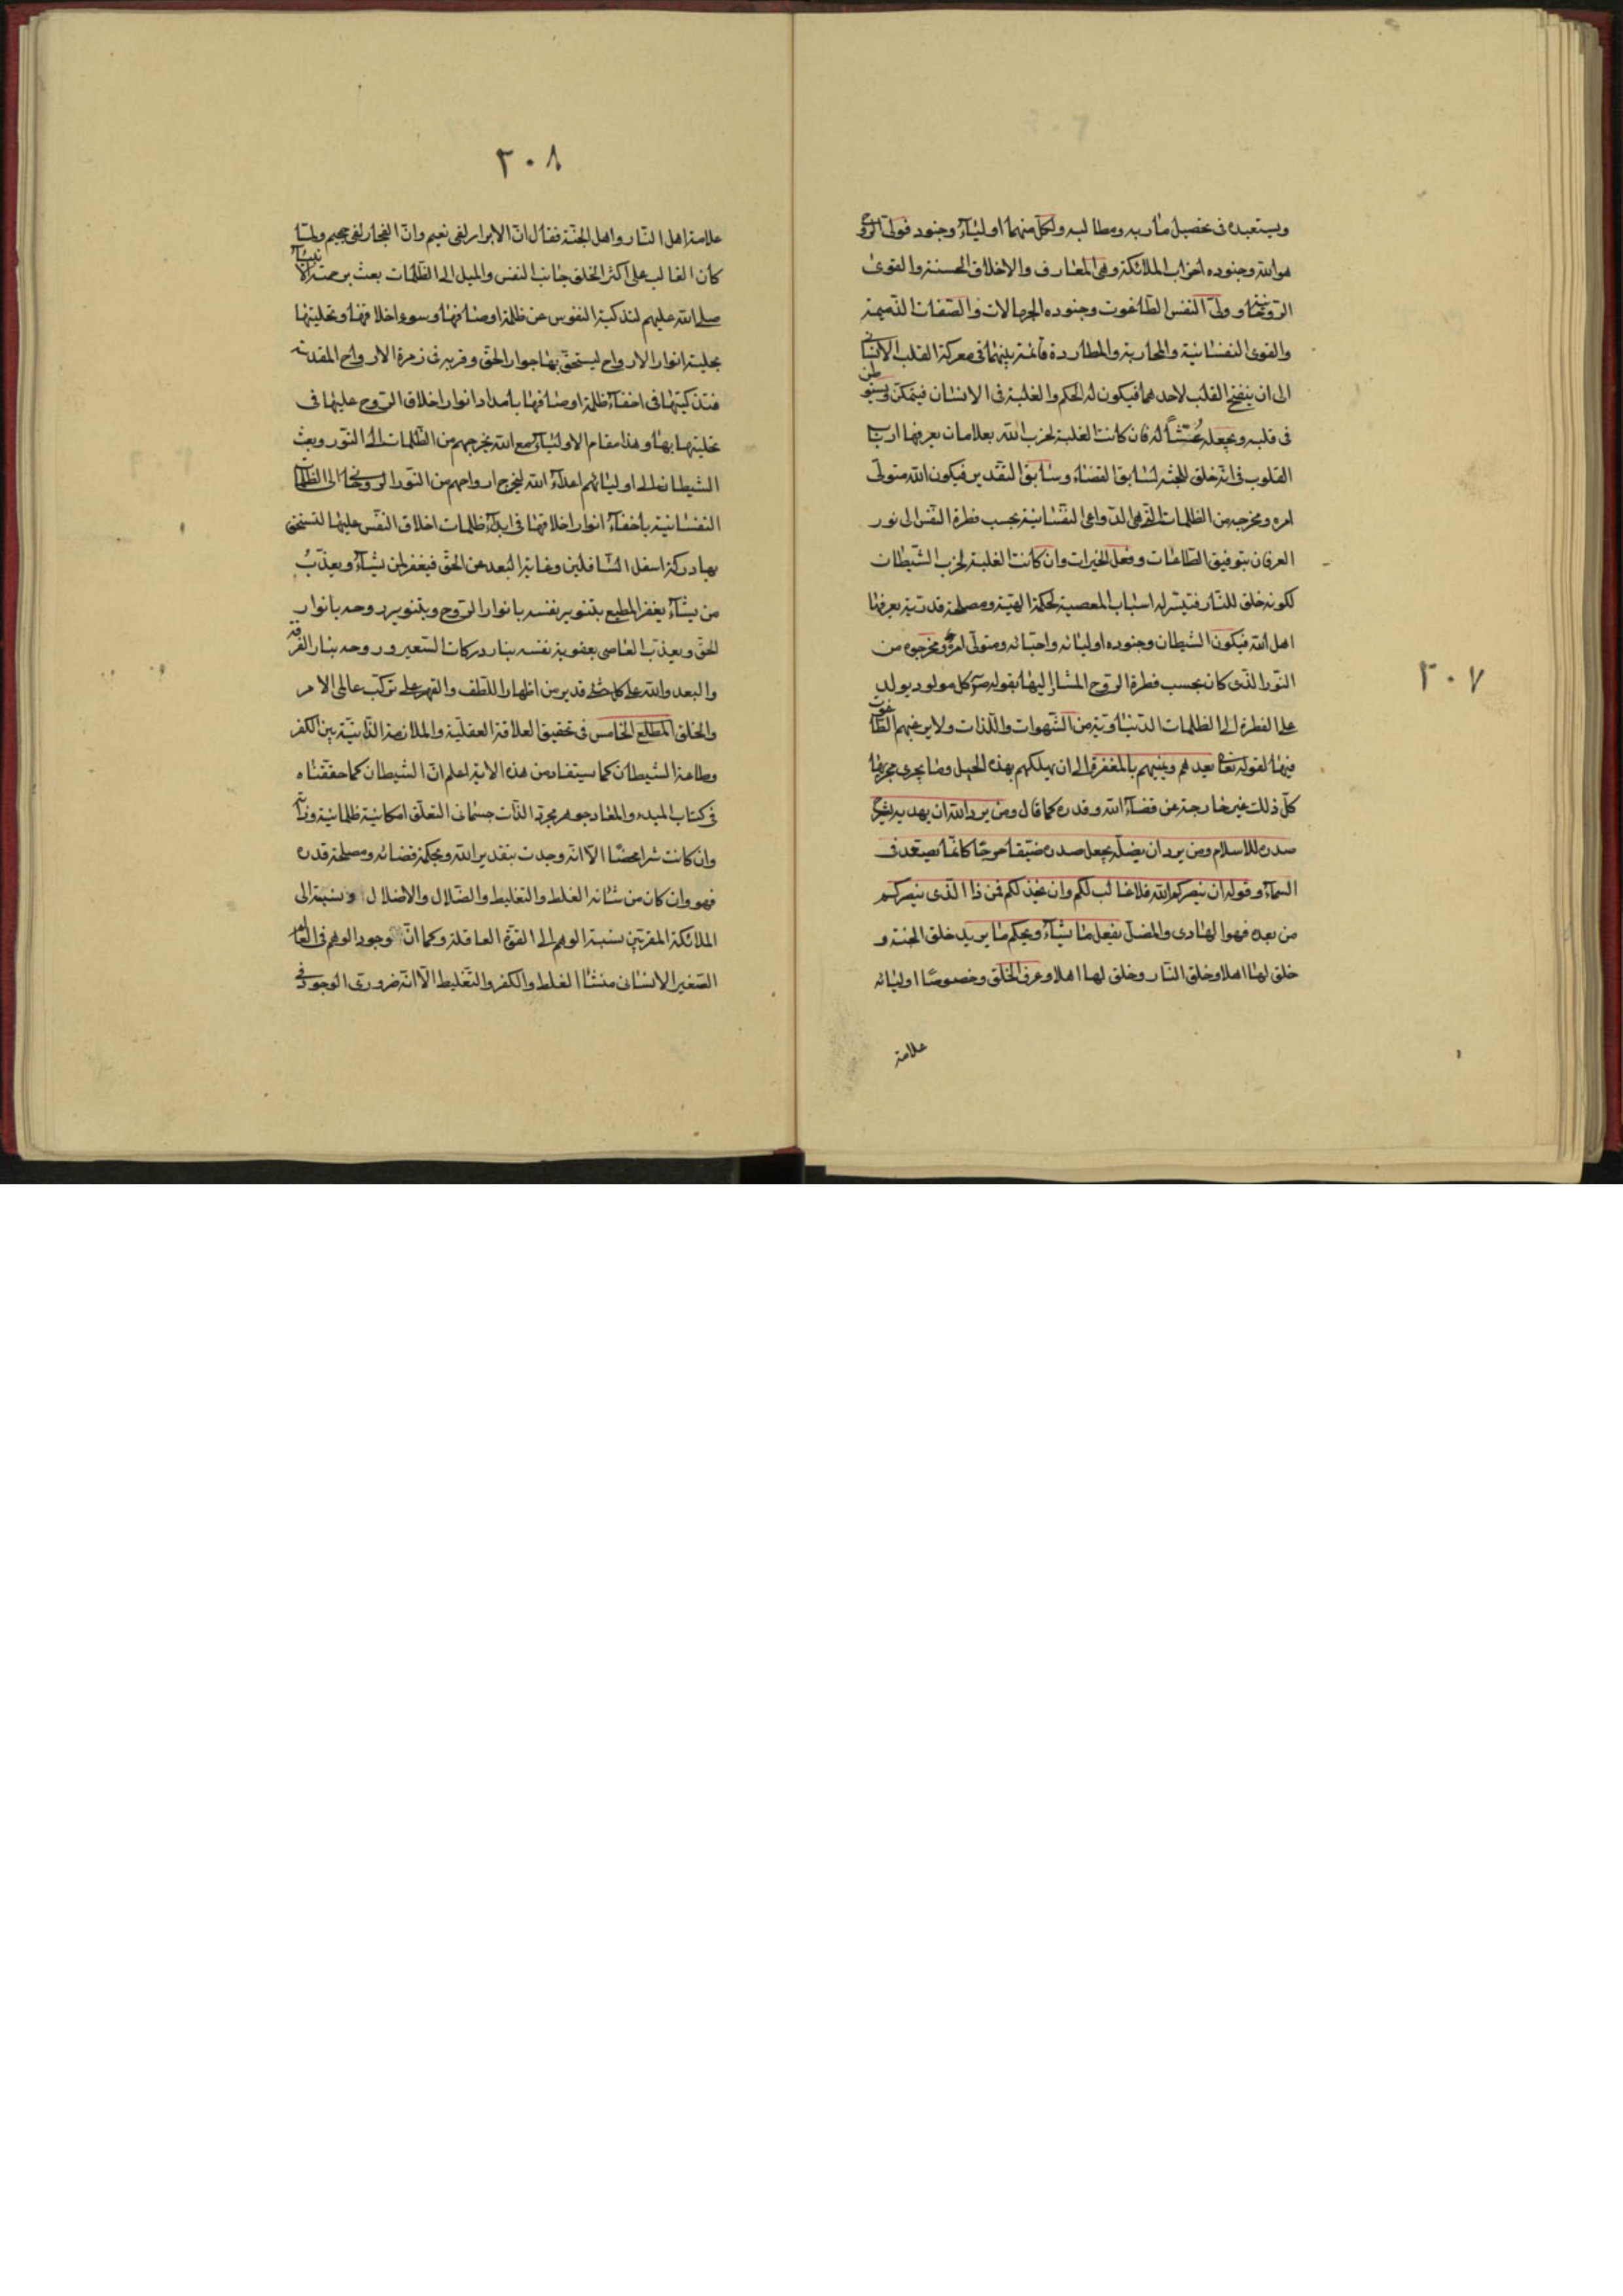 ٢٠٧
ويستعبده فى تحصيل مآربه ومطالبه ولكل منهما اولياء وجنود فولى الروح
هو الله وجنوده احزاب الملائكة وهى المعارف والاخلاق الحسنة والقوى
الروحانية وولى النفس الطاغوت وجنوده الجهالات والصفات الذميمة
والقوى النفسانية والمحاربة والمطاردة قائمة بينهما فى معركة القلب الانسانى
الى ان ينفتح القلب لاحدهما فيكون له الحكم والغلبة فى الانسان فيتمكن ويستوطن
فى قلبه ويجعله عشّاً له فان كانت الغلبة لحزب الله بعلامات يعرفها ارباب
القلوب فى انه خلق للجنة لسابق القضاء وسابق التقدير فيكون الله متولى
امره ومخرجه من الظلمات التى هى الدواعى النفسانية بحسب فطرة النفس الى نور
العرفان بتوفيق الطاعات وفعل الخيرات وان كانت الغلبة لحزب الشيطان
لكونه خلق للنار فتيسر له اسباب المعصية لحكمة الهية ومصلحة قدرية يعرفها
اهل الله فيكون الشيطان وجنوده اوليائه واحبائه ومتولى امره ومخرجوه من
النور الذى كان بحسب فطرة الروح المشار اليها بقوله ص كل مولود يولد
على الفطرة الى الظلمات الدنياوية من الشهوات واللذات ولا يرغبهم الطاغوت
فيها لقوله تعالى يعدهم ويمنيهم بالمغفرة الى ان يهلكهم بهذه الحيل وما يجرى مجريها
كل ذلك غير خارجة عن قضاء الله وقدره كما قال ومن يرد الله ان يهديه يشرح
صدره للاسلام ومن يرد ان يضله يجعل صدره ضيقا حرجا كانما يصعد فى
السماء وقوله ان ينصركم الله فلا غالب لكم وان يخذلكم فمن ذا الذى ينصركم
من بعده فهو الهادى والمضل يفعل ما يشاء ويحكم ما يريد خلق الجنة و
خلق لها اهلا وخلق النار وخلق لها اهلا وعرف الخلق وخصوصا اوليائه
علامة
٢٠٨
علامة اهل النار واهل الجنة فقال ان الابرار لفى نعيم وان الفجار لفى جحيم ولما
كان الغالب على اكثر الخلق جانب النفس والميل الى الظلمات بعث برحمته الانبياء
صلى الله عليهم لتذكية النفوس عن ظلمة اوصافها وسوء اخلاقها وتحليتها
بحلية انوار الارواح ليستحق بها جوار الحق وقربه فى زمرة الارواح المقدسة
فتذكيتها فى اخفاء ظلمة اوصافها بامداد انوار اخلاق الروح عليها فى
تحليتها بها وهذا مقام الاولياء مع الله يخرجهم من الظلمات الى النور وبعث
الشيطان الى اوليائهم اعداء الله ليخرج ارواحهم من النور الروحانى الى الظلمات
النفسانية باخفاء انوار اخلاقها فى ابداء ظلمات اخلاق النفس عليها لتستحق
بها دركة اسفل السافلين وغاية البعد عن الحق فيغفر لمن يشاء ويعذب
من يشاء يغفر المطيع بتنوير نفسه بانوار الروح وبتنوير روحه بانوار
الحق ويعذب العاصى بعقوبة نفسه بنار دركات السعير وروحه بنار الفرقة
والبعد والله على كل شئ قدير من اظهار اللطف والقهر على تركب عالمى الامر
والخلق المطلع الخامس فى تحقيق العلاقة العقلية والملازمة الذاتية بين الكفر
وطاعة الشيطان كما سيتفاد من هذه الاية اعلم ان الشيطان كما حققناه
فى كتاب المبدء والمعاد جوهر مجرد الذات جسمانى التعلق امكانية ظلمانية وذاته
وان كانت شرا محضا الا انه وجدت بتقدير الله وبحكمة قضائه ومصلحة قدره
فهو وان كان من شانه الغلط والتغليط والضلال والاضلال ونسبته الى
الملائكة المقربين نسبة الوهم الى القوة العاقلة وكما ان وجود الوهم فى العالم
الصغير الانسانى منشأ الغلط والكفر والتغليط الا انه ضرورى الوجود فى